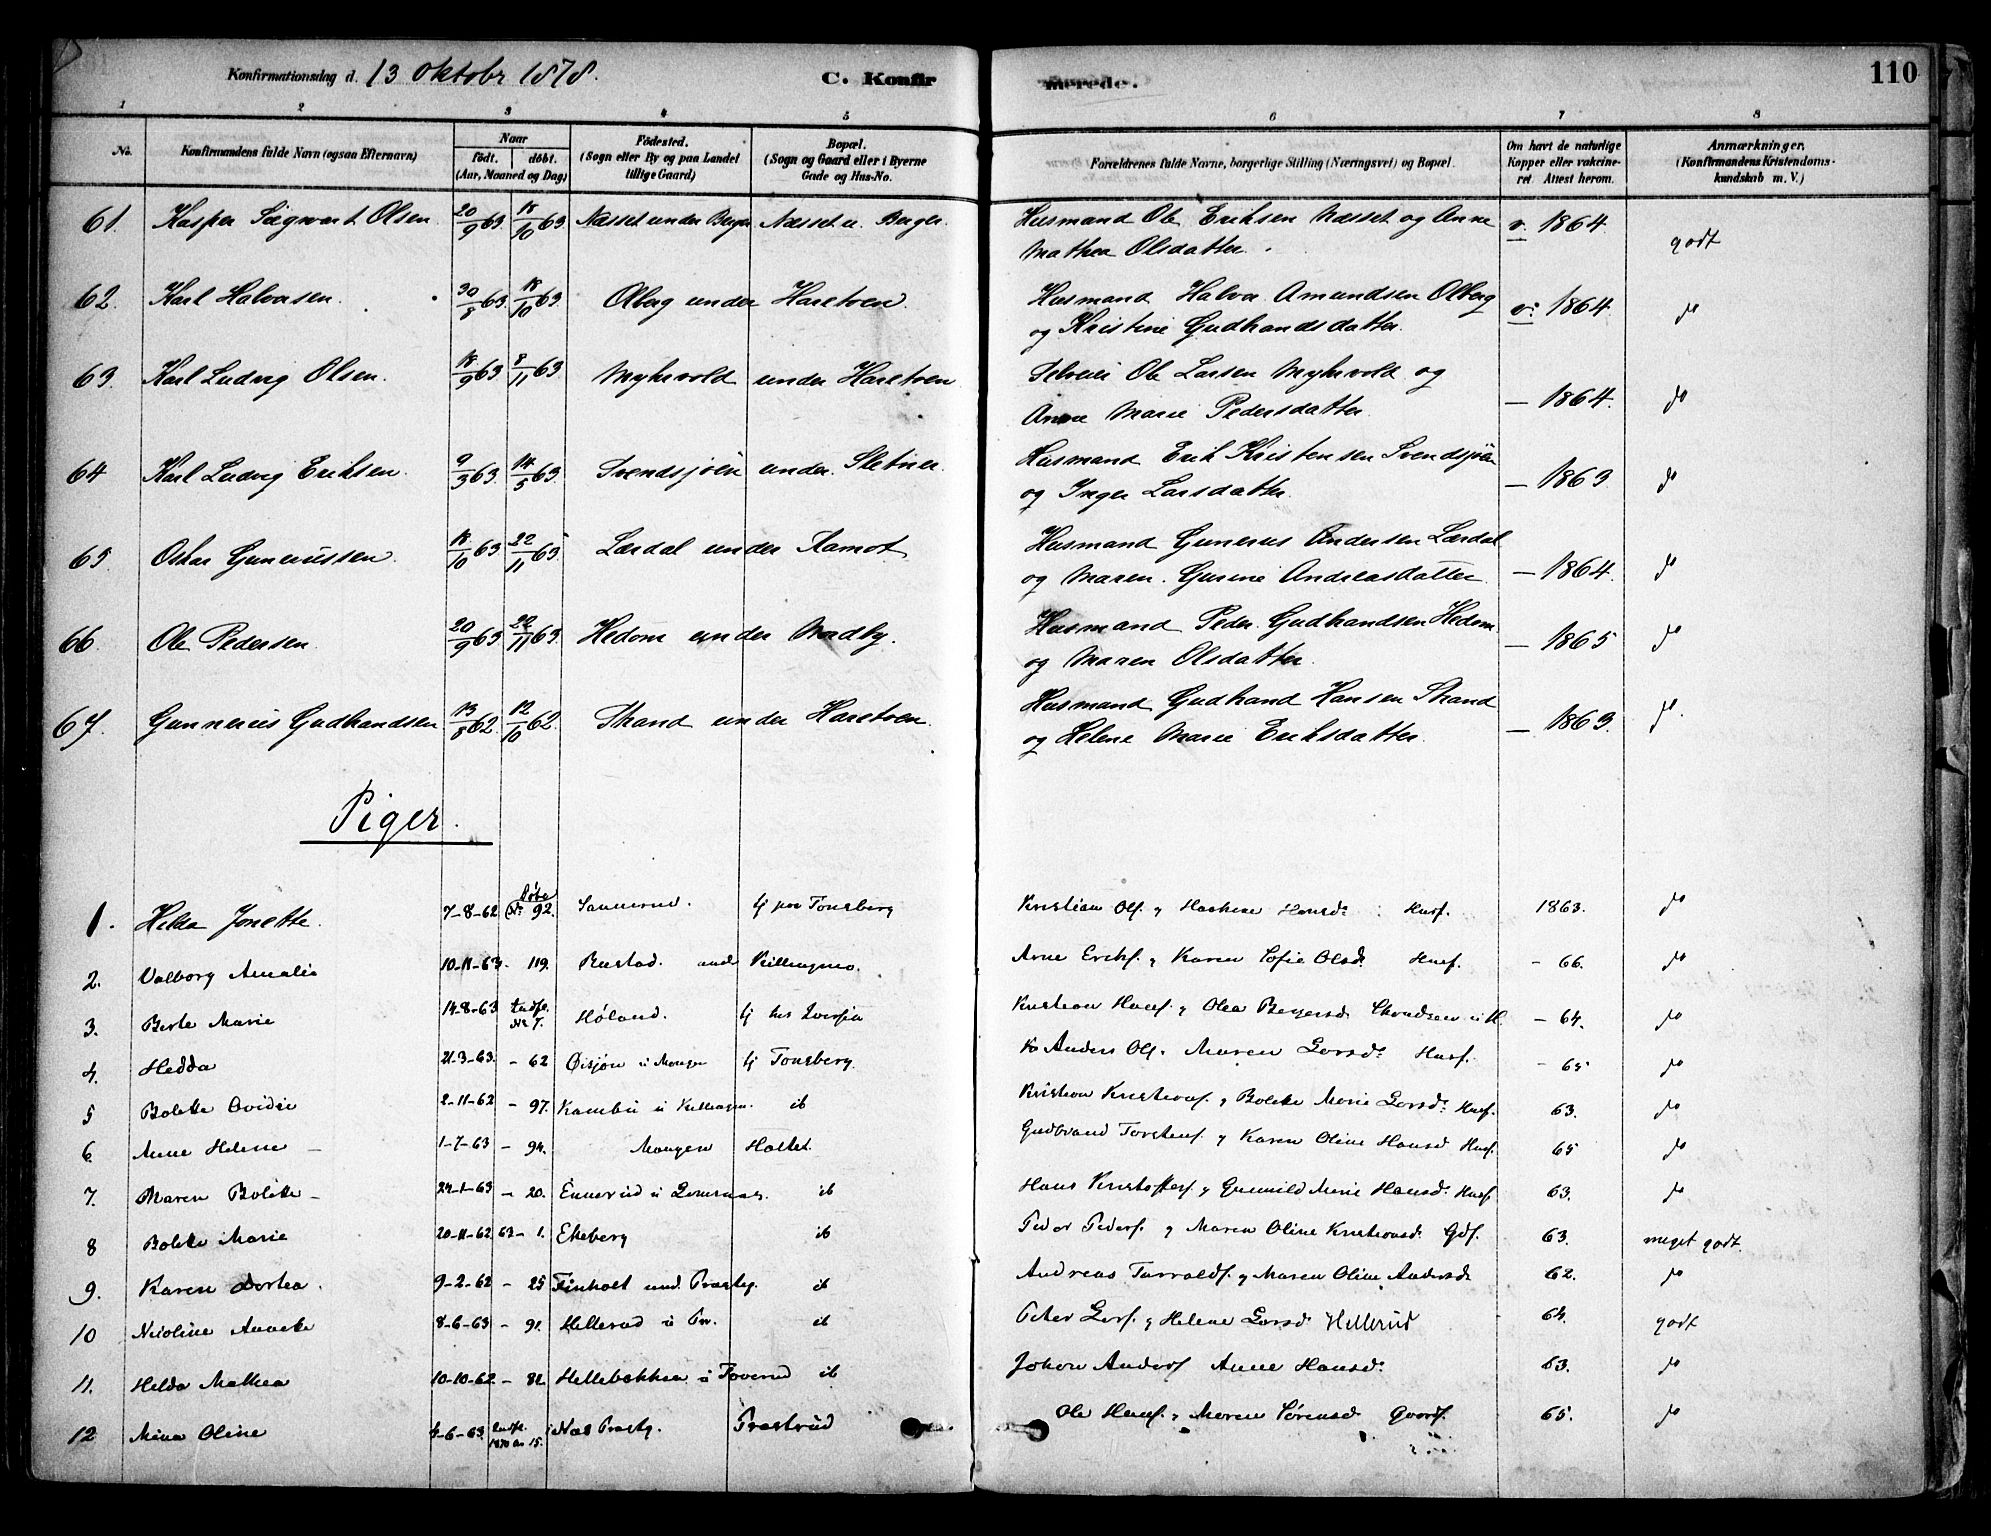 Konfirmationsdag d. 13 Oktobr 1878. C. Konfirmerede. 110
1 2 3 4 5 6 7 8
No. Konfirmandens fulde Navn (ogsaa Efternavn) Naar født. døbt. (Aar, Maaned og Dag) Fødested. (Sogn eller By og paa Landet tillige Gaard) Bopæl. (Sogn og Gaard eller i Byerne Gade og Hus-No. Forældrenes fulde Navne, borgerlige Stilling (Næringsvei) og Bopæl. Om havt de naturlige Kopper eller vakcineret. Attest herom. Anmærkninger. (Konfirmandens Kristendomskundskab m. V.)
61. Kasper Sigvart Olsen. 20/9 63. 18/10 63. Næsset under Berger Næsset u. Berger. Husmand Ole Eriksen Næsset og Anne v. 1864
Mathea Olsdatter. godt
62. Karl Halvorsen. 30/8 63. 18/10 63. Olberg under Haretven Husmand Halvor Amundsen Olberg v. 1864. do
og Kristine Gudbrandsdatter.
63. Karl Ludvig Olsen. 18/9 63 8/11 63. Myhrvold under Haretven Selveier Ole Larsen Myhrvold og
Anne Marie Pedersdatter. — 1864. do
64 Karl Ludvig Eriksen. 9/3 63. 14/5 63. Svendsjøen under Sletner. Husmand Erik Kristensen Svendsjøen
og Inger Larsdatter. — 1863 do
65. Oskar Gunerussen. 18/10 63 22/11 63. Lærdal under Aamot Husmand Gunerus Andersen Lærdal
og Maren Gurine Andreasdatter. — 1864. do
66. Ole Pedersen. 20/9 63 22/11 63. Hedom under Nordby. Husmand Peder Gudbrandsen Hedom
og Maren Olsdatter. — 1865 do
67. Gunnerius Gudbrandsen 13/8 62. 12/10 62. Strand under Haretven. Husmand Gudbrand Hansen Strand
og Helene Marie Eriksdatter. — 1863. do.
Piger.
1. Helda Jonette. 7-8-62 Døbe No 92. Sannerud. tj paa Tonsberg Kristian Ols. & Hansd. Husf. 1863. do
2. Valborg Amalie 10-11-63- 119. Rustad. und Killingmo. Arne Erikf. & Karen Sofie Olsd. Husf. - 66. do
3. Berte Marie 14-8-63 No 7. Høland. tj hos Kristian Hansf. & Olea Bergersd. - 64. do
4. Hedda 21-3-63. - 62 Øisjøn u Mangen tj Tonsberg. Anders Olf. Maren Larsd. Husf. - 65 do
5 Bolette Ovidie 2-11-62 - 97. Kambu u Killingm. ib Kristian Kristianf. & Bolette Marie Larsd. Husf. 63. do
6. Anne Helene — 1-7-63 - 94. Mangen Holtet. Gudbrand Torstenf. & Karen Oline Hansd Husf. 65 do
7. Maren Bolette — 24-1-63 - 20. Ennerud u ib Hans Kristofferf. & Gunnild Marie Hansd. Husf 63. do
8 Bolette Marie 20-11-62 63- 1. Ekeberg ib Peder Pederf. & Maren Oline Kristiansd. Gdf. 63. meget godt.
9. Karen Dortea. 9-2-62 - 25 Finholt und. Præstg. ib Andreas Torvaldf. & Maren Oline Andersd 62. do
10 Nicoline Annette 8-6-63 - 91. Hellerud u Pr. ib Peter Larsf. & Helene Larsd Hellerud 64. godt
11. Helda Mathea 10-10-62 - 82. Hellebekken u Toverud ib Johan Andersf Anne Hansd. 63. do
12 Mina Oline 4-6-63. 1870 No 15. Nes Præstg. Præsterud Ole Hansf. & Maren Sørensd Gaardf. 65. do